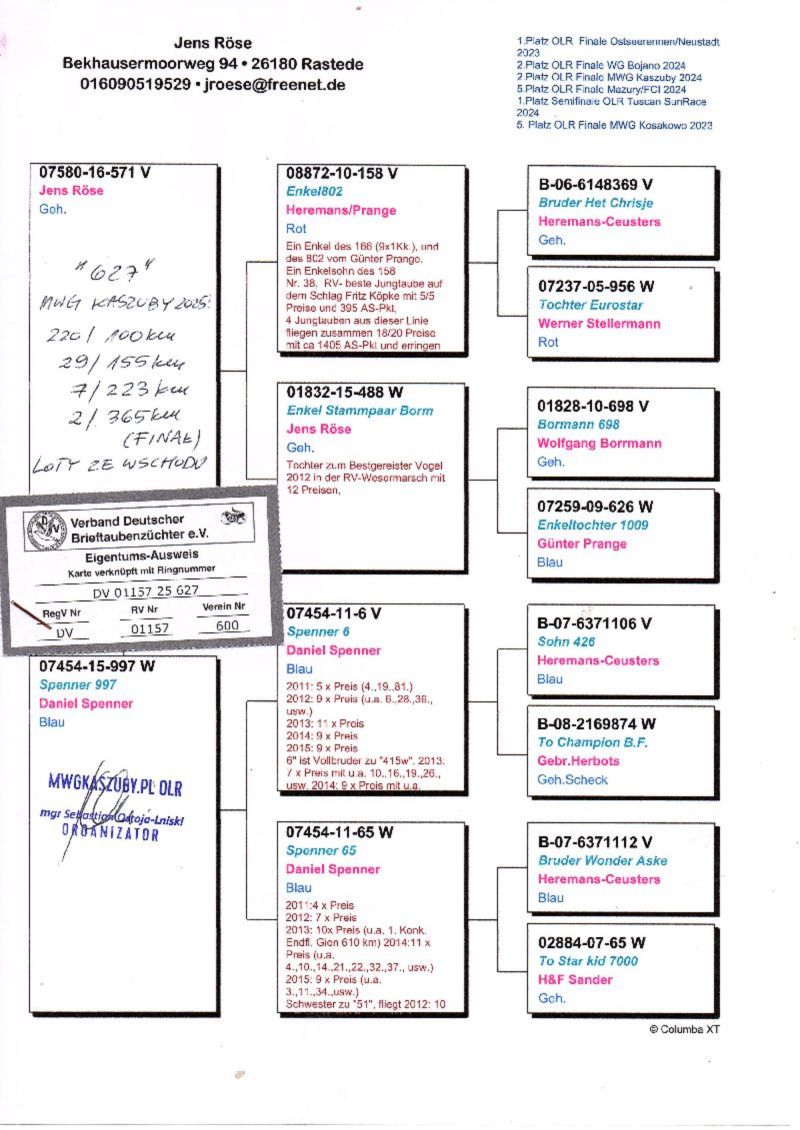 Jens Röse
Bekhausermoorweg 94 • 26180 Rastede
016090519529 • jroese@freenet.de
1.Platz OLR Finale Ostseerennen/Neustadt
2023
2.Platz OLR Finale WG Bojano 2024
2 Platz OLR Finale MWG Kaszuby 2024
5.Platz OLR Finale Mazury/FCI 2024
1.Platz Semifinale OLR Tuscan SunRace
2024
5. Platz OLR Finale MWG Kosakowo 2023
07580-16-571 V
Jens Röse
Geh.
"627"
MWG KASZUBY 2025:
220/ 100km
29/ 155km
7/ 223km
2/ 365km
(FINAŁ)
LOTY ZE WSCHODU
Verband Deutscher
Brieftaubenzüchter e.V.
Eigentums-Ausweis
Karte verknüpft mit Ringnummer
DV 01157 25 627
RegV Nr RV Nr Verein Nr
DV 01157 600
07454-15-997 W
Spenner 997
Daniel Spenner
Blau
MWGKASZUBY.PL OLR
mgr Sebastian Ostoja-Lniski
ORGANIZATOR
08872-10-158 V
Enkel802
Heremans/Prange
Rot
Ein Enkel des 166 (9x1Kk.), und
des 802 vom Günter Prange.
Ein Enkelsohn des 158
Nr. 38, RV- beste Jungtaube auf
dem Schlag Fritz Köpke mit 5/5
Preise und 395 AS-Pkt,
4 Jungtauben aus dieser Linie
fliegen zusammen 18/20 Preise
mit ca 1405 AS-Pkt und erringen
01832-15-488 W
Enkel Stammpaar Borm
Jens Röse
Geh.
Tochter zum Bestgereister Vogel
2012 in der RV-Wesermarsch mit
12 Preisen,
07454-11-6 V
Spenner 6
Daniel Spenner
Blau
2011: 5 x Preis (4.,19.,81.)
2012: 9 x Preis (u.a. 6.,28.,36.,
usw.)
2013: 11 x Preis
2014: 9 x Preis
2015: 9 x Preis
6" ist Vollbruder zu "415w". 2013:
7 x Preis mit u.a. 10.,16.,19.,26.,
usw. 2014: 9 x Preis mit u.a.
07454-11-65 W
Spenner 65
Daniel Spenner
Blau
2011:4 x Preis
2012: 7 x Preis
2013: 10x Preis (u.a. 1. Konk.
Endfl. Gien 610 km) 2014:11 x
Preis (u.a.
4.,10.,14.,21.,22.,32.,37., usw.)
2015: 9 x Preis (u.a.
3.,11.,34.,usw.)
Schwester zu "51", fliegt 2012: 10
B-06-6148369 V
Bruder Het Chrisje
Heremans-Ceusters
Geh.
07237-05-956 W
Tochter Eurostar
Werner Stellermann
Rot
01828-10-698 V
Bormann 698
Wolfgang Borrmann
Geh.
07259-09-626 W
Enkeltochter 1009
Günter Prange
Blau
B-07-6371106 V
Sohn 426
Heremans-Ceusters
Blau
B-08-2169874 W
To Champion B.F.
Gebr.Herbots
Geh.Scheck
B-07-6371112 V
Bruder Wonder Aske
Heremans-Ceusters
Blau
02884-07-65 W
To Star kid 7000
H&F Sander
Geh.
© Columba XT